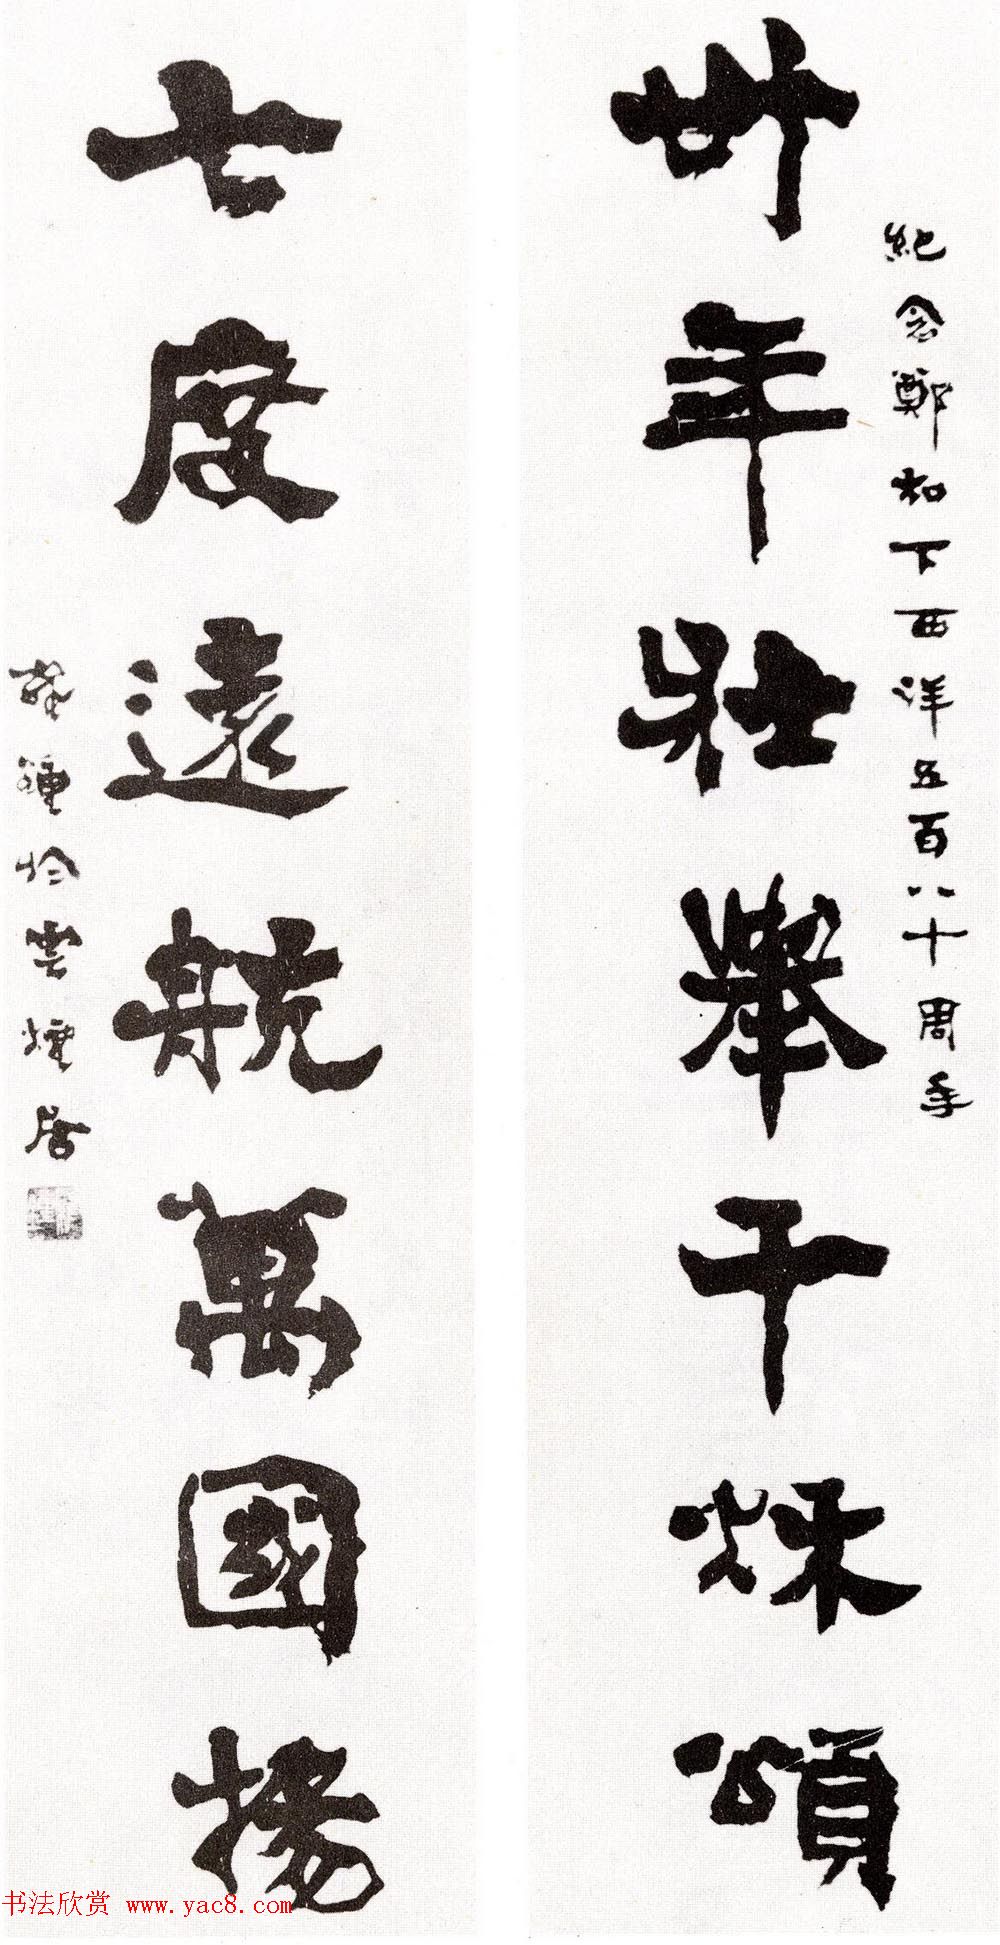 紀念鄭和下西洋五百八十周年
卅年壯舉千秌頌
七度遠航萬國揚
於雲煙居
书法欣赏 www.yac8.com